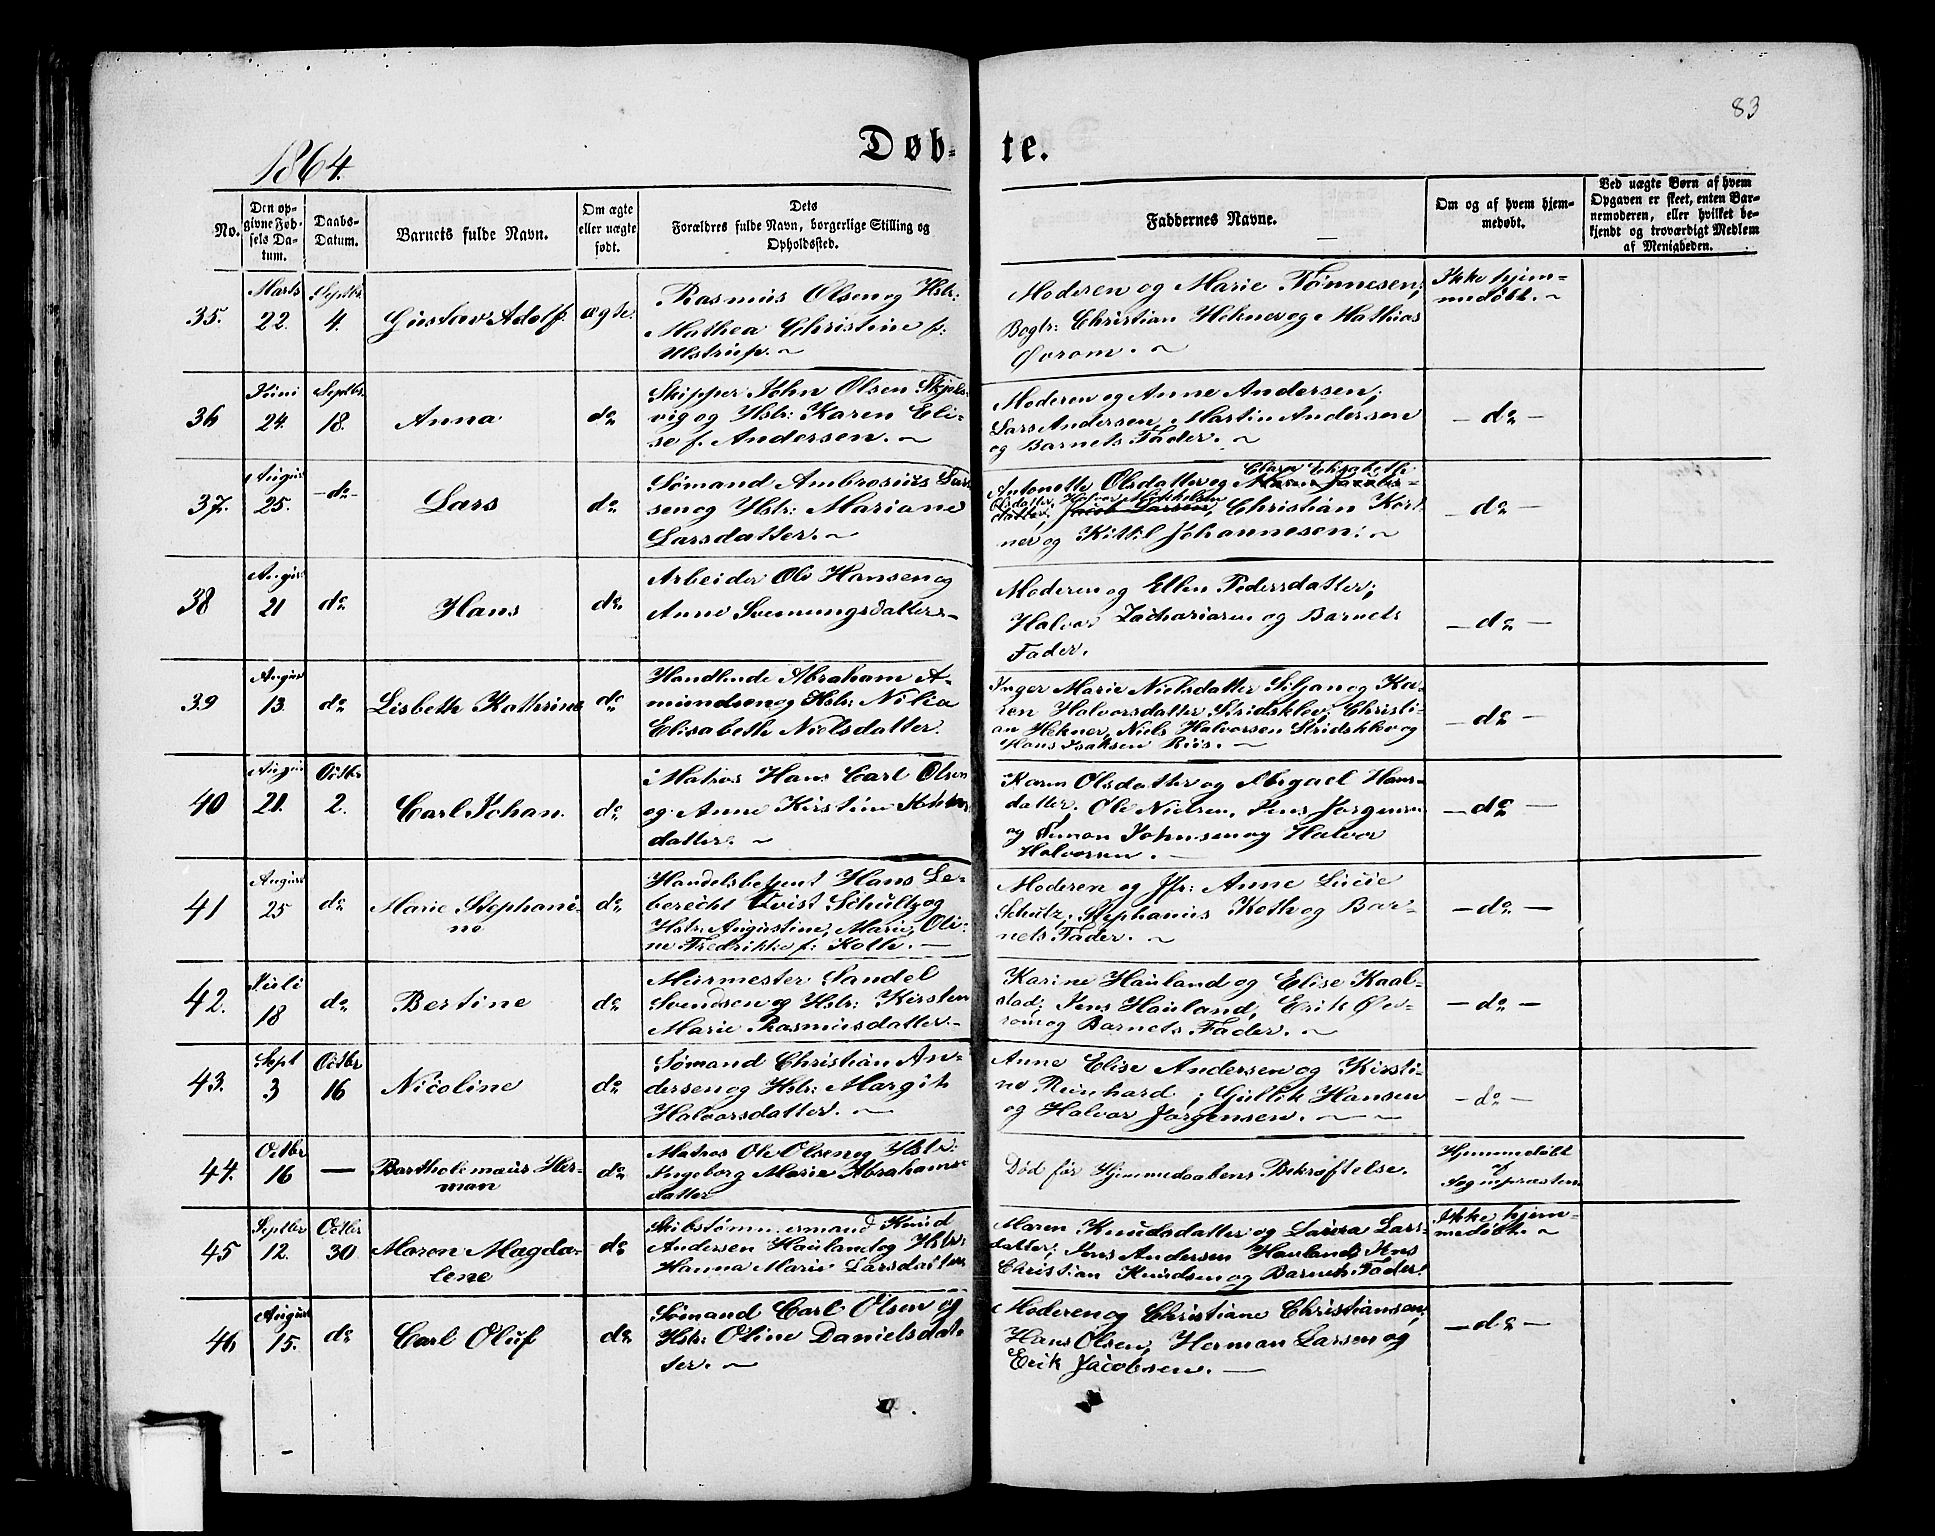 83
1864.
Døb- te.
No.
Den op-
givne Fød-
sels Da-
tum.
Daabs-
Datum.
Barnets fulde Navn.
Om ægte
eller uægte
født.
Dets
Forældres fulde Navn, borgerlige Stilling og
Opholdssted.
Faddernes Navne.
Om og af hvem hjem-
medøbt.
Ved uægte Børn af hvem
Opgaven er skeet, enten Bar-
nemoderen, eller hvilket be-
kjendt og troværdigt Medlem
af Menigheden.
35.
Marts
22.
Septbr
4.
Gustav Adolf.
ægte.
Rasmus Olsen og Hstr:
Mathea Christine f:
Ulstrup. ~
Moderen og Marie Tønnesen;
Bogtr: Christian Hekner og Mathias
Øvrom. ~
Ikke hjem-
medøbt. ~
36
Juni
24.
Septbr.
18.
Anna
do
Skipper John Olsen Skjels-
vig og Hstr: Karen Eli-
se f. Andersen. ~
Moderen og Anne Andersen;
Lars Andersen, Martin Andersen
og Barnets Fader. ~
- do -
37.
August
25.
- do -
Lars
do
Sømand Ambrosius Lars-
sen og Hstr: Mariane
Larsdatter. ~
Clara Elisabeth
Antonette Olsdatter og Maren Jacobs-
Olsdatter, Halvor Mikkelsen
datter; Jacob Larsen, Christian Kort-
ner og Kittil Johannesen. ~
- do -
38
August
21
do
Hans
do
Arbeider Ole Hansen og
Anne Svenungsdatter -
Moderen og Ellen Pedersdatter;
Halvor Zachariasen og Barnets
Fader.
- do -
39
August
13.
do
Lisbeth Kathrine
do
Handlende Abraham A-
mundsen og Hstr: Nilia
Elisabeth Nielsdatter.
Inger Marie Nielsdatter Siljan og Ka-
ren Halvorsdatter Stridsklev; Christi-
an Hekner, Niels Halvorsen Stridsklev og
Hans Isaksen Riis. ~
- do -
40
August
21.
Octbr
2.
Carl Johan.
do
Matros Hans Carl Olsen
og Anne Kirstine
datter. ~
Karen Olsdatter og Abigael Hans-
datter; Ole Nielsen, Jens Jørgensen
og Simon Johnsen og Halvor
Halvorsen. -
- do -
41
August
25
do
Marie Stephani-
ne
do
Handelsbetjent Hans Le-
berecht Qvist Schultz og
Hstr: Augustine, Marie, Oli-
ne Fredrikke f: Kolte. -
Moderen og Jfr: Anne Lucie
Schutz; Stephanus Kolth og Bar-
nets Fader. ~
- do -
42.
Juli
18
do
Bertine
do
Murmester Sandel
Svendsen og Hstr: Kirsten
Marie Rasmusdatter. -
Karine Hauland og Elise Kaal-
stad; Jens Hauland, Erik Øv-
rom og Barnets Fader. ~
- do -
43.
Sept
3
Octbr
16
Nicoline
do
Sømand Christian An-
dersen og Hstr: Margit
Halvorsdatter. ~
Anne Elise Andersen og Kirsti-
ne Reinhard; Gullik Hansen
og Halvor Jørgensen. ~ -
- do -
44.
Octbr
16
-
Bartholomæus Her-
man
do
Matros Ole Olsen og Hstr:
Ingeborg Marie Abrahams-
datter
Død før Hjemmedaabens Bekræftelse.
Hjemmedøbt
af
Sognepræsten.
45
Septbr
12.
Octbr
30
Maren Magda-
lene
do
Skibstømmermand Knud
Andersen Hauland og Hstr:
Hanna Marie Larsdatter
Maren Knudsdatter og Laura Lars-
datter; Jens Andersen Hauland, Jens
Christian Knudsen og Barnets Fader.
Ikke hjem-
medøbt. ~
46
August
15.
do
Carl Oluf
do
Sømand Carl Olsen og
Hstr: Oline Danielsdat-
ter. ~
Moderen og Christiane Christiansen;
Hans Olsen, Herman Larsen og
Erik Jacobsen. -
- do -